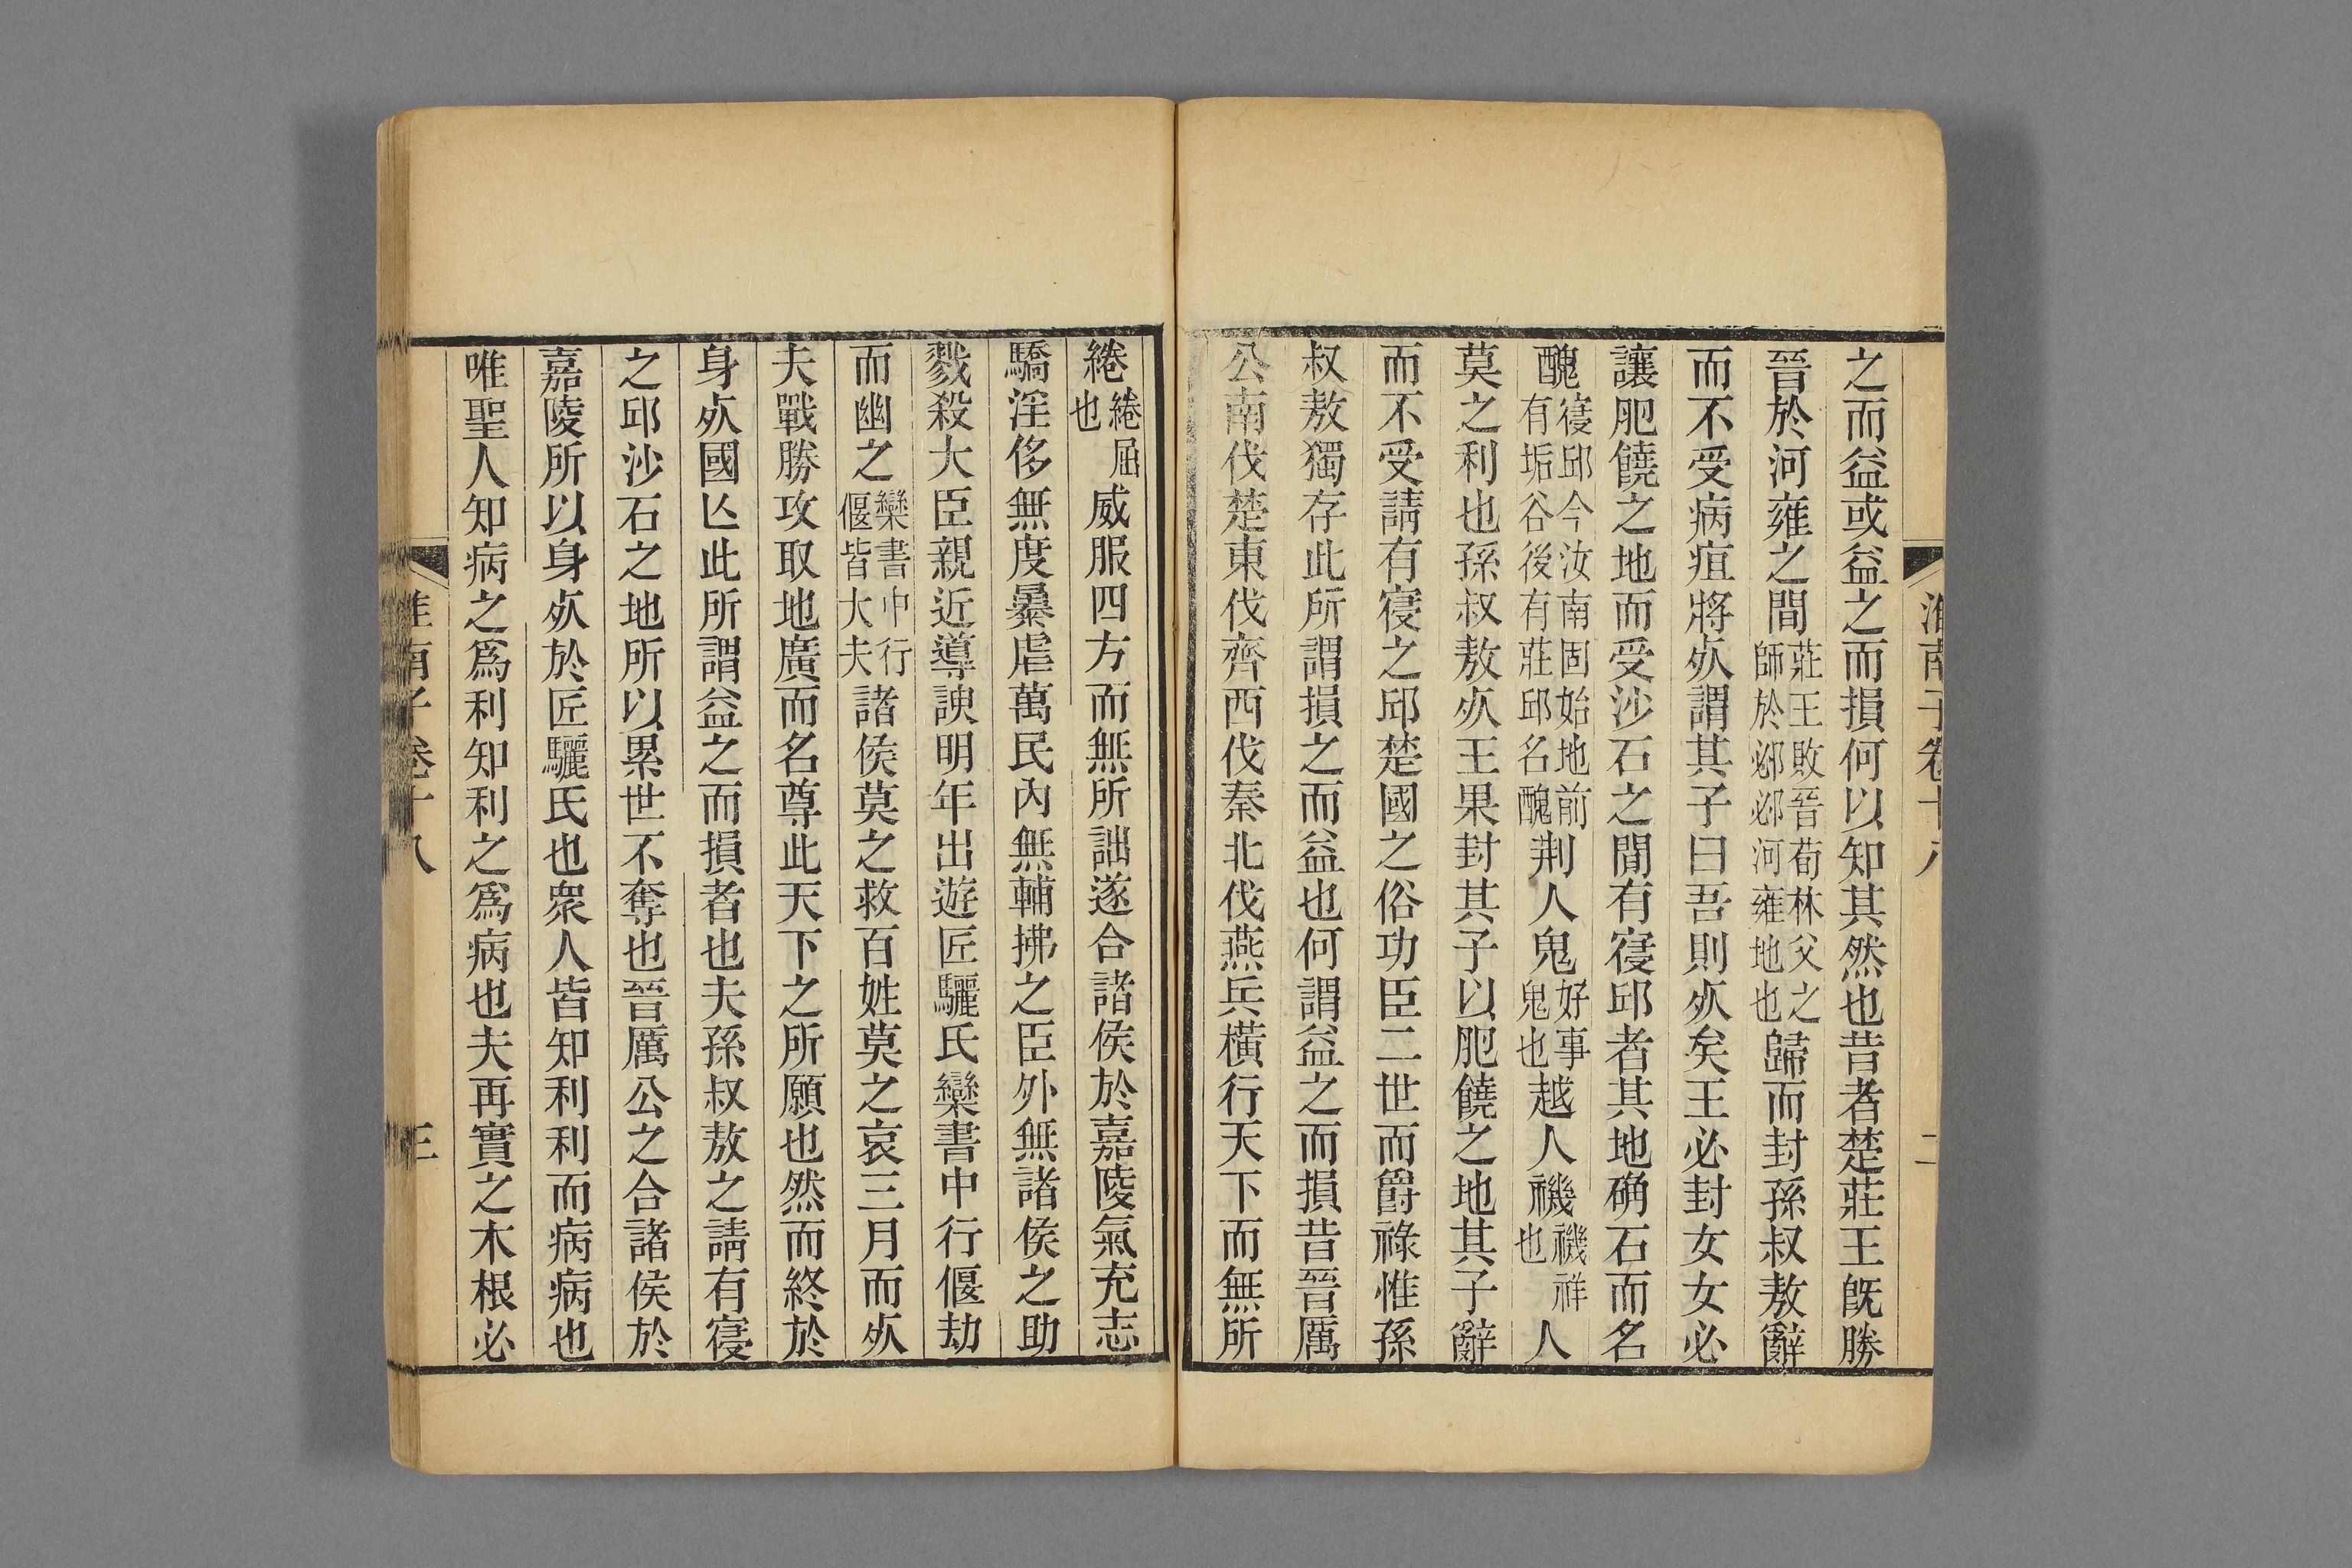 淮南子卷十八
二
之而益或益之而損何以知其然也昔者楚莊王旣勝
晉於河雍之間莊王敗晉荀林父之師於邲邲河雍地也歸而封孫叔敖辭
而不受病疽將𣦸謂其子曰吾則𣦸矣王必封女女必
讓肥饒之地而受沙石之間有寑邱者其地确石而名
醜寑邱今汝南固始地前有垢谷後有莊邱名醜荆人鬼好事鬼也越人禨禨祥也人
莫之利也孫叔敖𣦸王果封其子以肥饒之地其子辭
而不受請有寑之邱楚國之俗功臣二世而爵祿惟孫
叔敖獨存此所謂損之而益也何謂益之而損昔晉厲
公南伐楚東伐齊西伐秦北伐燕兵橫行天下而無所
綣綣屈也威服四方而無所詘遂合諸侯於嘉陵氣充志
驕淫侈無度㬥虐萬民內無輔拂之臣外無諸侯之助
戮殺大臣親近導諛明年出遊匠驪氏欒書中行偃劫
而幽之欒書中行偃皆大夫諸侯莫之救百姓莫之哀三月而𣦸
夫戰勝攻取地廣而名尊此天下之所願也然而終於
身𣦸國亾此所謂益之而損者也夫孫叔敖之請有寑
之邱沙石之地所以累世不奪也晉厲公之合諸侯於
嘉陵所以身𣦸於匠驪氏也衆人皆知利利而病病也
唯聖人知病之爲利知利之爲病也夫再實之木根必
淮南子卷十八
三